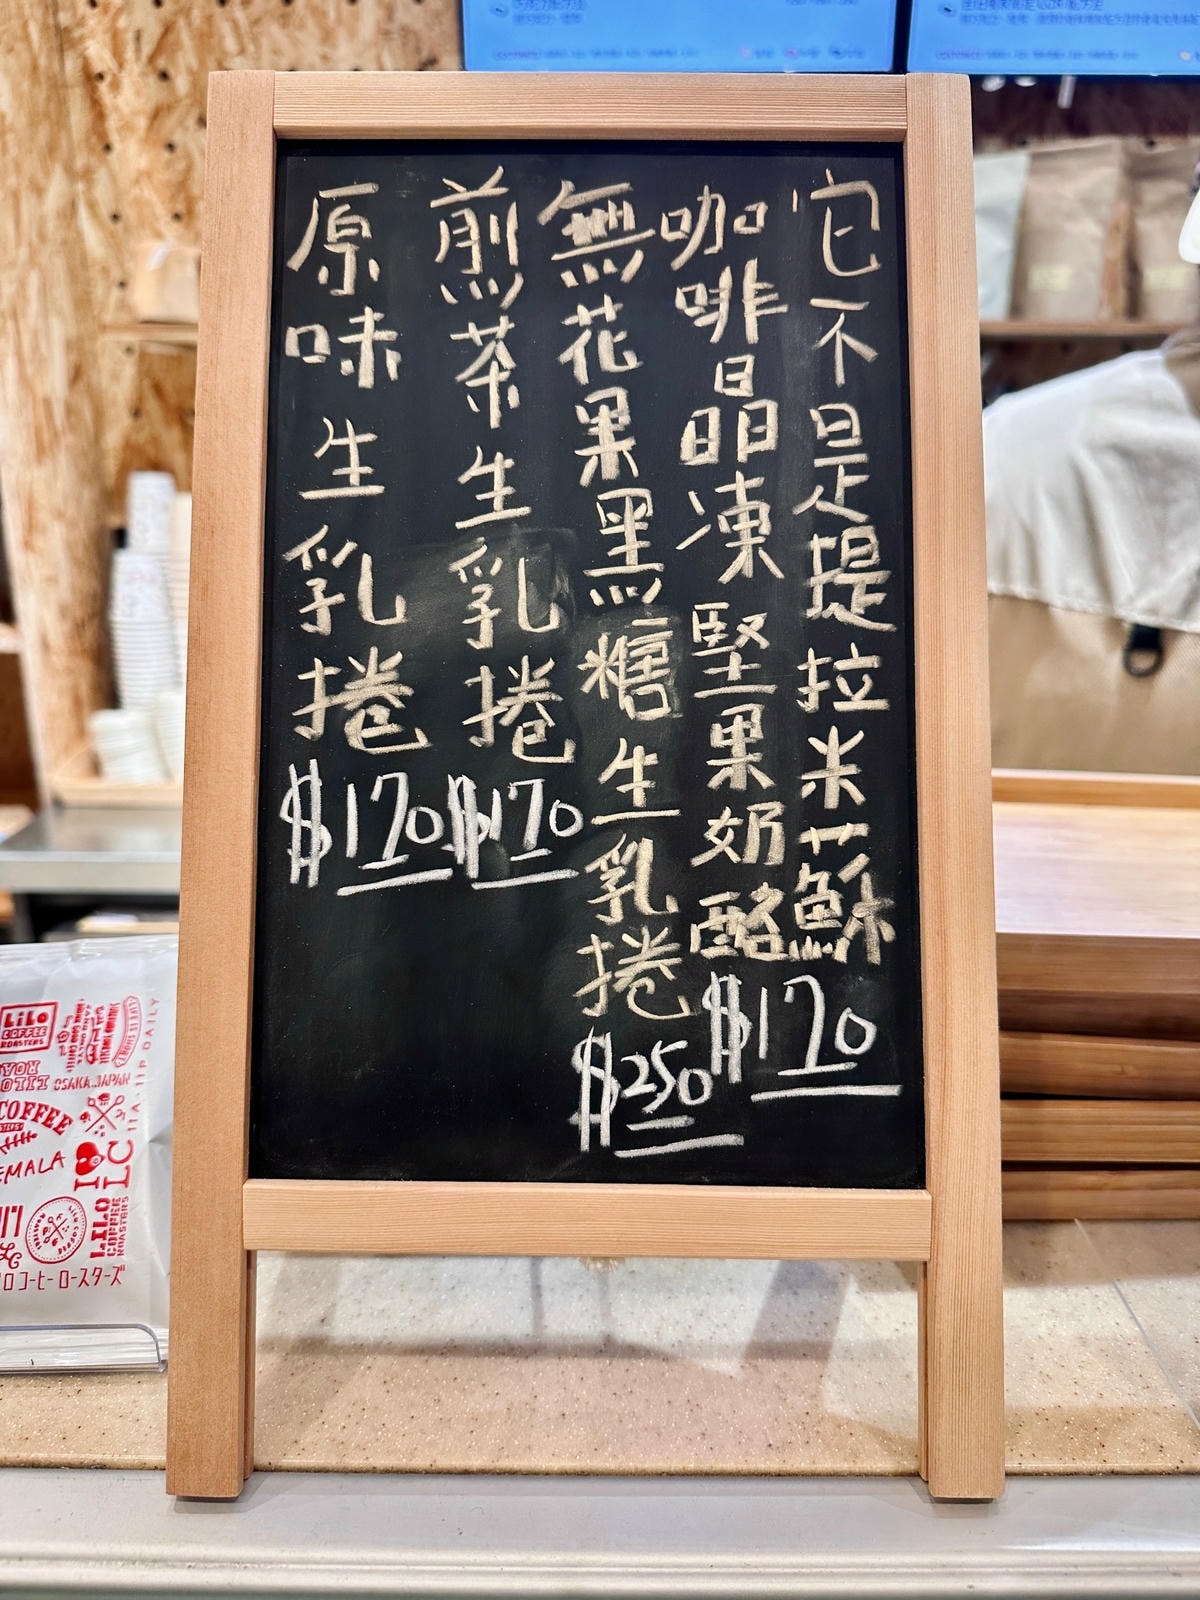 它不是提拉米蘇
咖啡晶凍堅果奶酪
$170
無花果黑糖生乳捲
$250
煎茶生乳捲
$170
原味生乳捲
$170
LiLo
COFFEE
ROASTERS
OSAKA.JAPAN
COFFEE
EMALA
I
LC
11A-11P DAILY
LILO
COFFEE
ROASTERS
ロコーヒーロースターズ